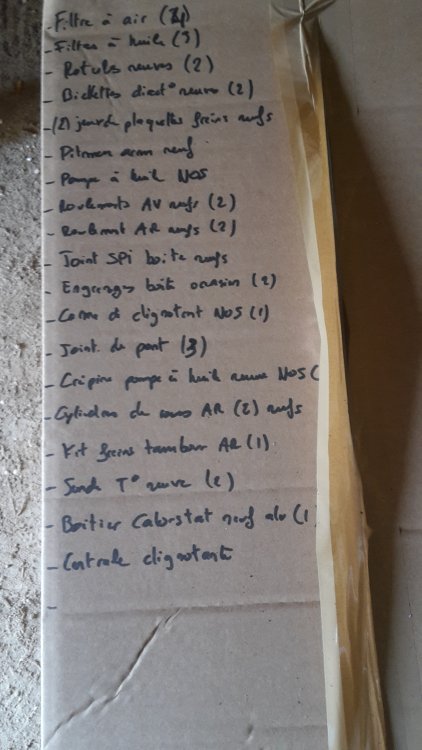 - Filtre à air
- Filtres à huile (3)
- Rotules neuves (2)
- Biellettes direct° neuves (2)
- (2) jeux de plaquettes freins neufs
- Pitman arm neuf
- Pompe à huile NOS
- Roulements AV neufs (2)
- Roulement AR neufs (2)
- Joint SPI boite neufs
- Engrenages boite occasion (2)
- Came de clignotant NOS (1)
- Joint de pont (3)
- Crépine pompe à huile neuve NOS (
- Cylindres de roues AR (2) neufs
- Kit freins tambour AR (1)
- Sonde T° neuve
- Boitier Calorstat neuf alu (1
- Centrale clignotante
-